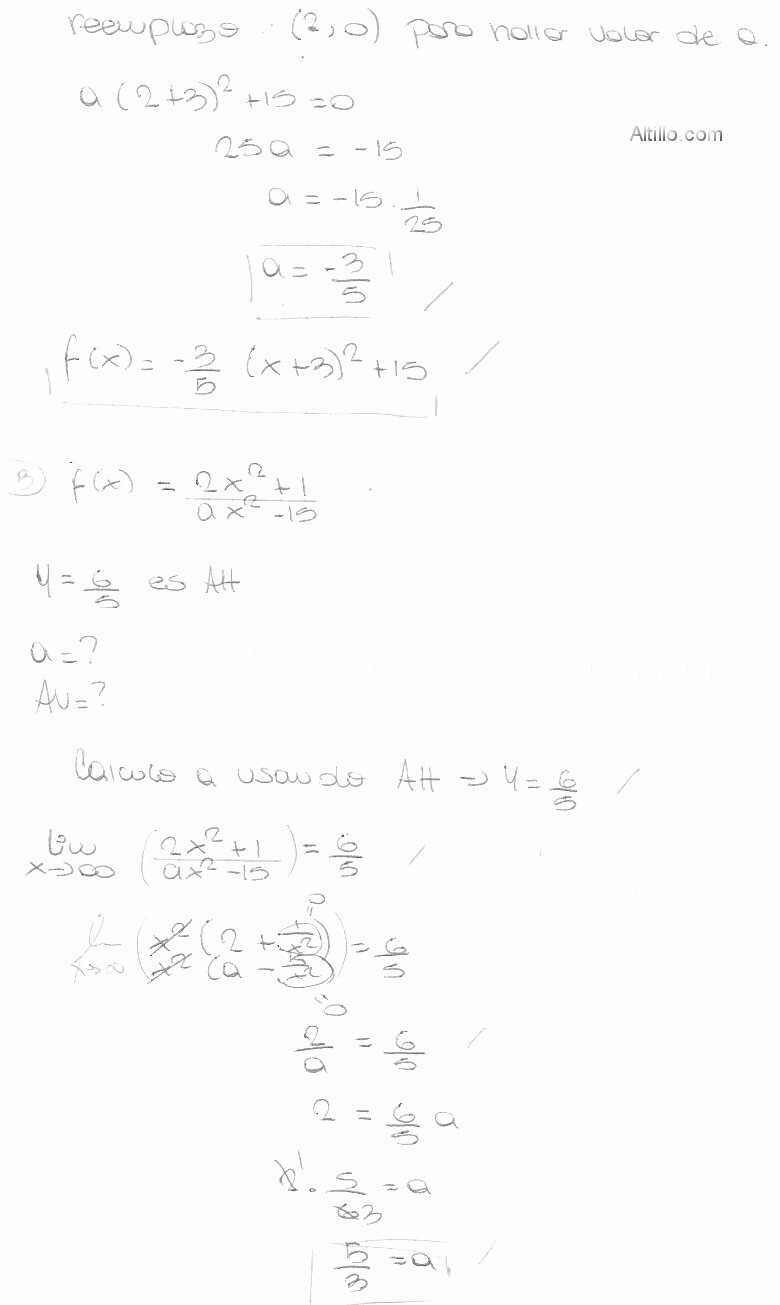 reemplazo (2,0) para hallar valor de a.
a (2+3)² +15 =0
Altillo.com
25a = -15
a = -15 . 1/25
a = -3/5
f(x) = -3/5 (x+3)² +15
3) f(x) = 2x² +1 / ax² -15
y = 6/5 es AH
a=?
AV=?
Calculo a usando AH → y = 6/5
lim x→∞ (2x² +1 / ax² -15) = 6/5
lim x→∞ (x² (2 + 1/x²) / x² (a - 15/x²)) = 6/5
=0
=0
2/a = 6/5
2 = 6/5 a
2 1 . 5/6 3 = a
5/3 = a